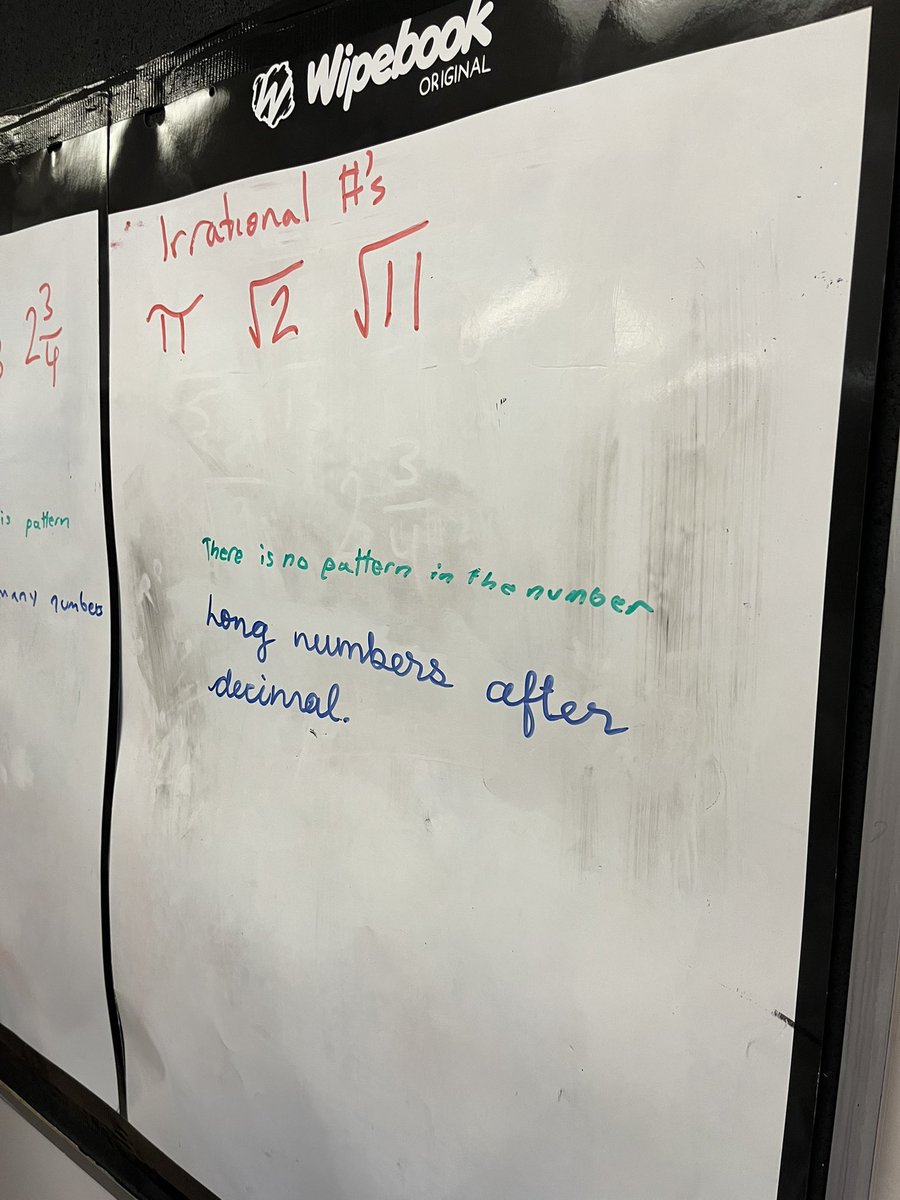 Wipebook
ORIGINAL
Irrational #'s
π √2 √11
2 3/4
2 3/4
is pattern
many numbers
There is no pattern in the number
Long numbers after
decimal.